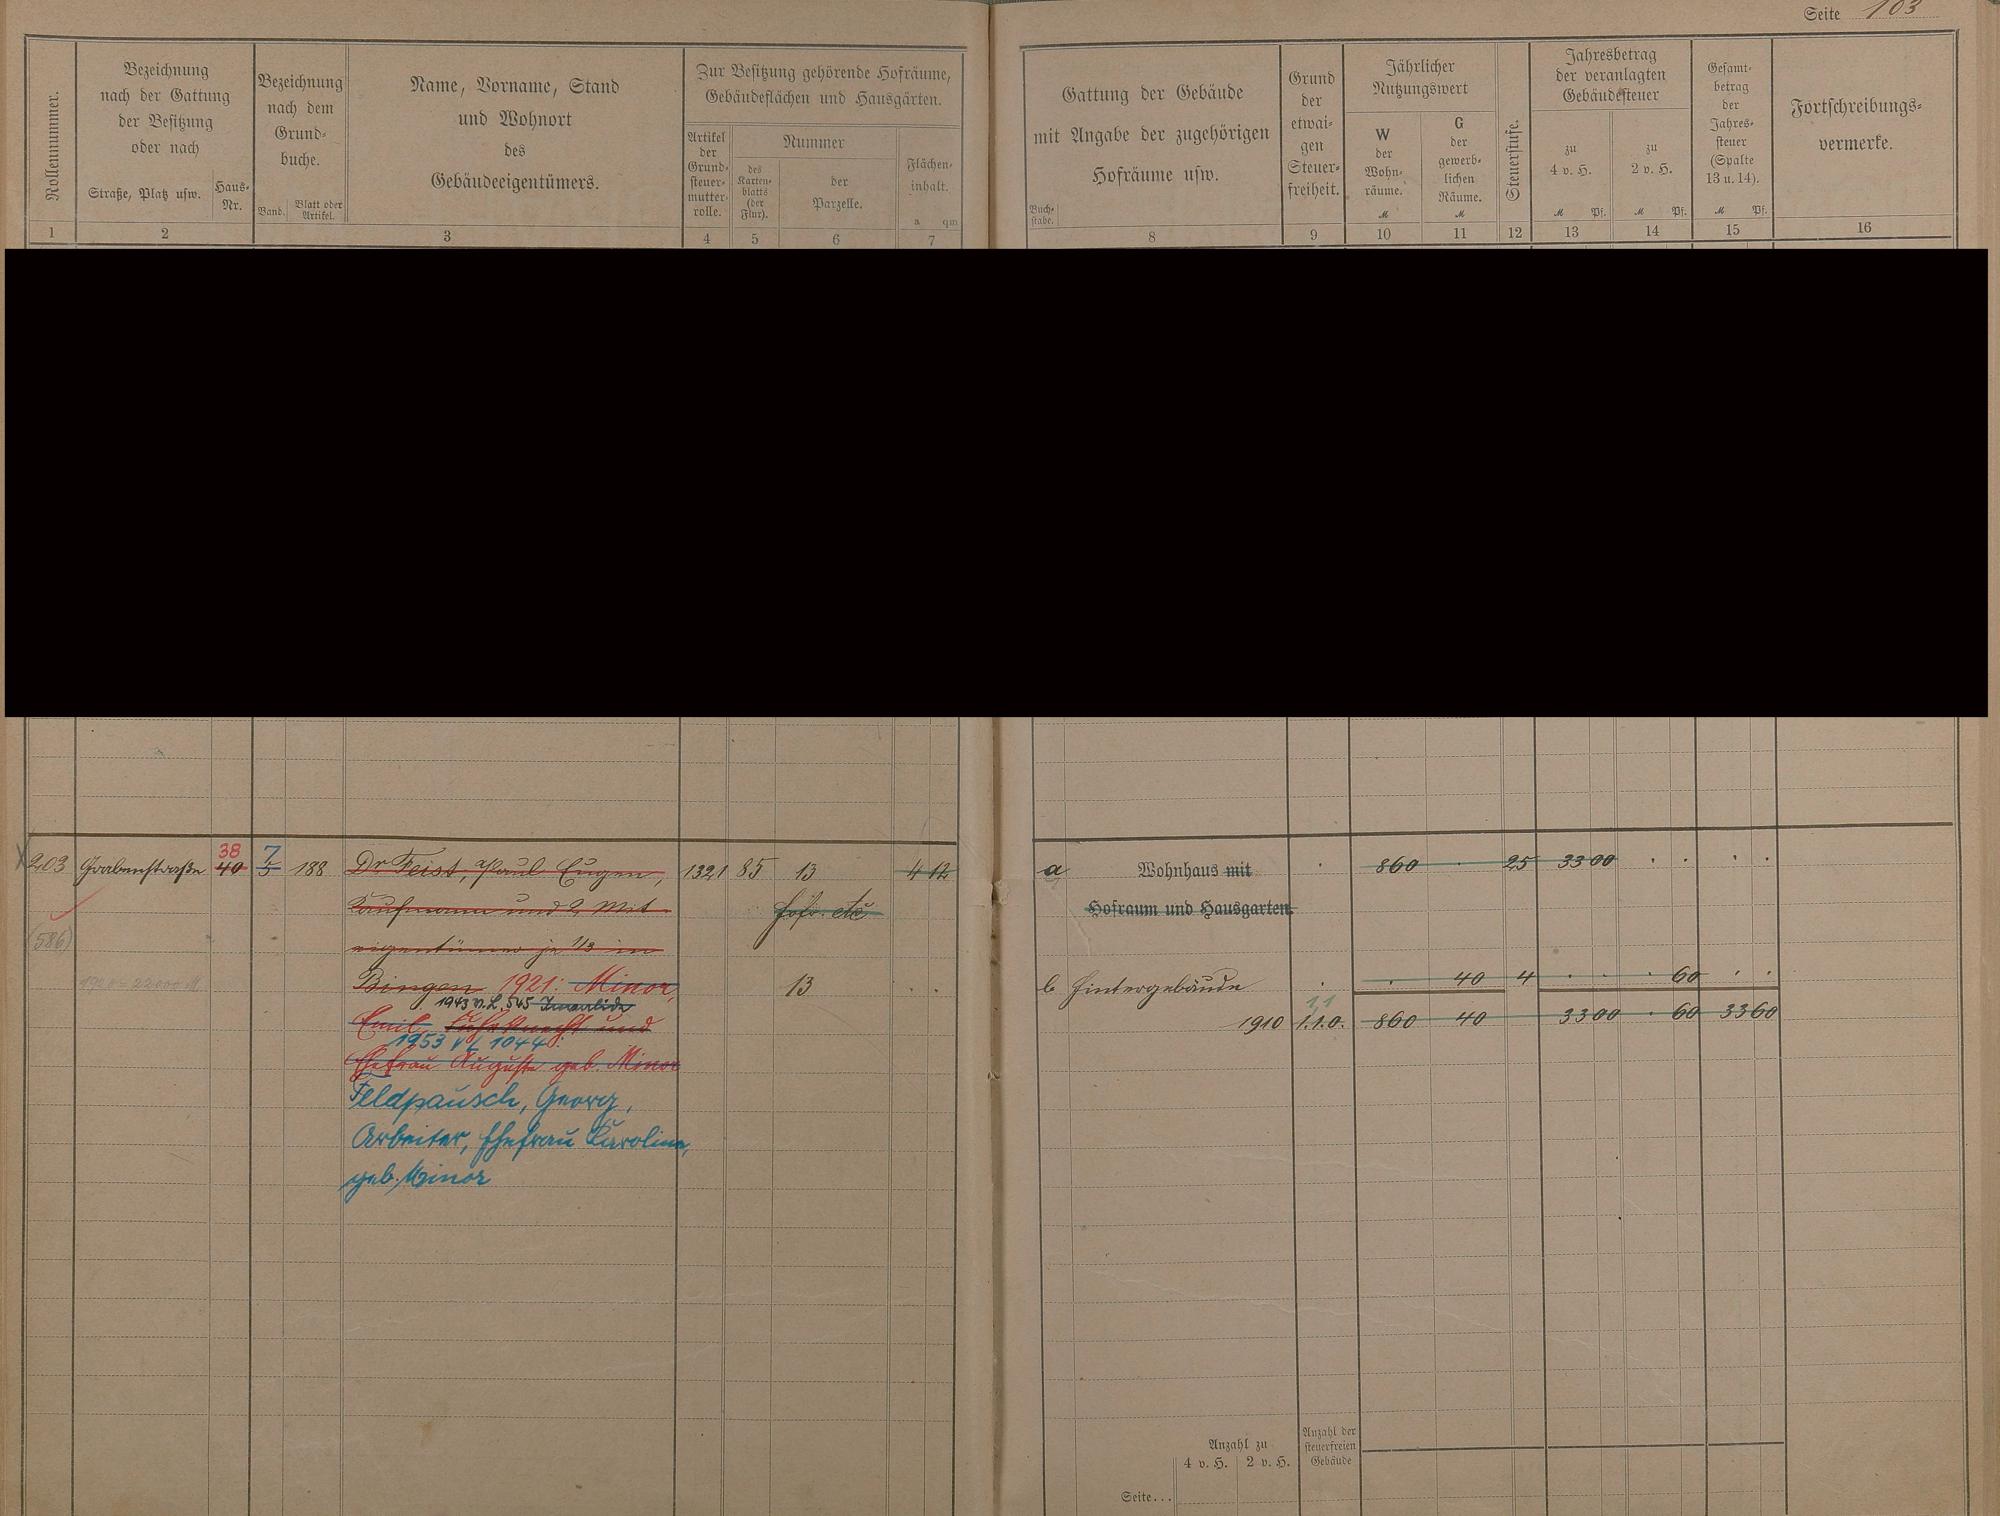 Seite 103
Rollennummer.
Bezeichnung
nach der Gattung
der Besitzung
oder nach
Straße, Platz usw.
Haus-
Nr.
Bezeichnung
nach dem
Grund-
buche.
Band.
Blatt oder
Artikel.
Name, Vorname, Stand
und Wohnort
des
Gebäudeeigentümers.
Zur Besitzung gehörende Hofräume,
Gebäudeflächen und Hausgärten.
Artikel
der
Grund-
steuer-
mutter-
rolle.
Nummer
des
Karten-
blatts
(der
Flur).
der
Parzelle.
Flächen-
inhalt.
a qm
1 2 3 4 5 6 7
Buch-
stabe.
Gattung der Gebäude
mit Angabe der zugehörigen
Hofräume usw.
Grund
der
etwai-
gen
Steuer-
freiheit.
Jährlicher
Nutzungswert
W
der
Wohn-
räume.
M
G
der
gewerb-
lichen
Räume.
M
Steuerstufe.
Jahresbetrag
der veranlagten
Gebäudesteuer
zu
4 v. H.
M Pf.
zu
2 v. H.
M Pf.
Gesamt-
betrag
der
Jahres-
steuer
(Spalte
13 u. 14).
M Pf.
Fortschreibungs-
vermerke.
8 9 10 11 12 13 14 15 16
203 Grabenstraße 40 38 5 7 188 Dr Feist, Paul Eugen, 1321 85 13 4 12
Kaufmann und 2 Mit- Hofr. etc
(586) eigentümer je 1/3 in
1920 = 22000 M. Bingen 1921: Minor, 13
1943 v. L. 545 Invalide
Emil, und
1953 v L 1044:
Ehefrau Auguste geb. Minor
Feldpausch, Georg,
Arbeiter, Ehefrau Karoline,
geb. Minor
a Wohnhaus mit . 860 . 25 33 00 . . . .
Hofraum und Hausgarten.
b Hintergebäude . . 40 4 . . . 60 . .
1.1
1910 1.1.0. 860 40 33 00 . 60 33 60
Anzahl zu
4 v. H. 2 v. H.
Anzahl der
steuerfreien
Gebäude
Seite...